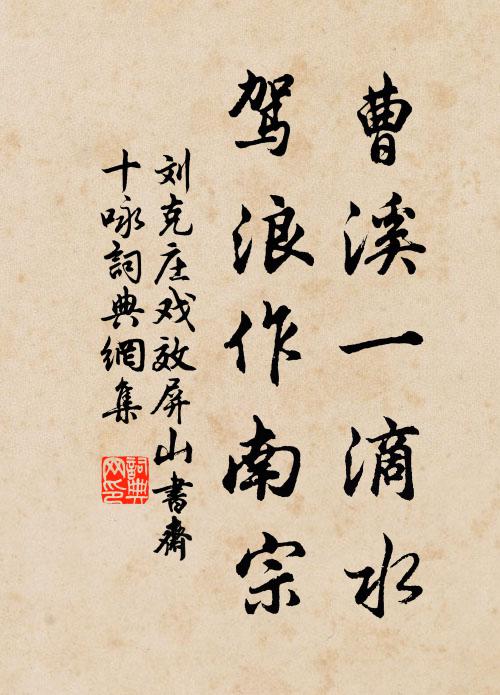 曹溪一滴水
驾浪作南宗
刘克庄戏效屏山书斋
十咏詞典網集
詞典网印